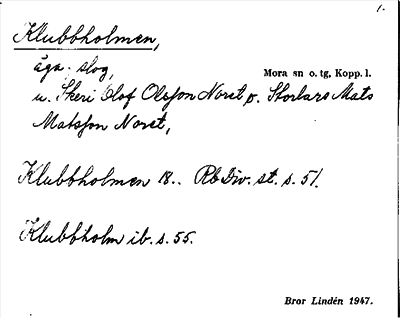 1.
Klubbholmen,
äga, slog,
Mora sn o. tg, Kopp. l.
u. Skeri Olof Olsson Noret o. Storlars Mats
Matsson Noret,
Klubbholmen 18.. Rb Div. st. s. 51.
Klubbholm ib. s. 55.
Bror Lindén 1947.